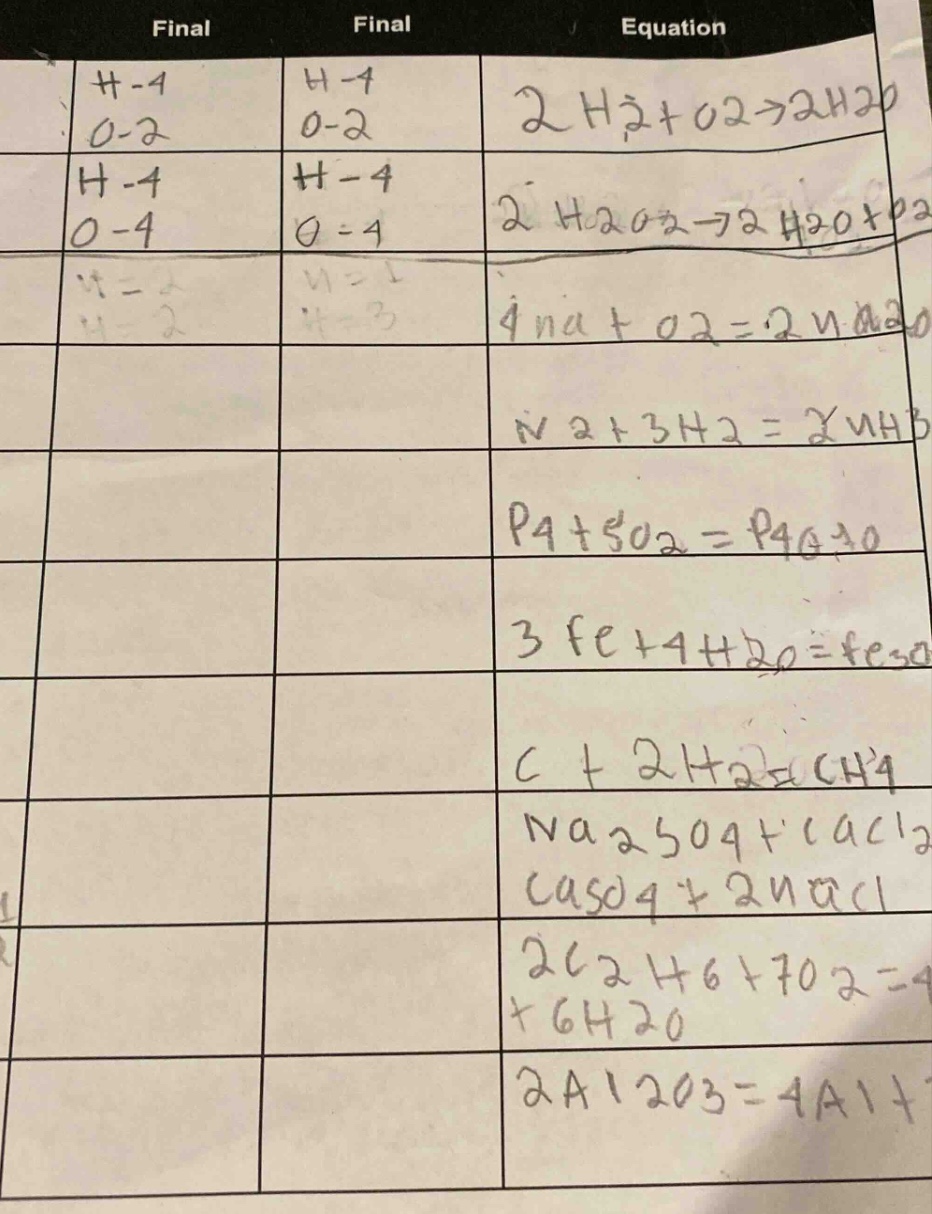 Final Final Equation
H-4 H-4 2 H2+O2→2H20
O-2 O-2
H-4 H-4 2 H2O2→2 H2O+O2
O-4 O=4
H=2 N=1 4na + O2=2NA20
N=2 H=3
N2+3H2=2NH3
P4+5O2=P4O10
3 fe+4H2O=fe3O
C+2H2=CH4
Na2SO4+CaCl2
CaSO4+2NaCl
2C2H6+7O2=4
+6H2O
2Al2O3=4Al+